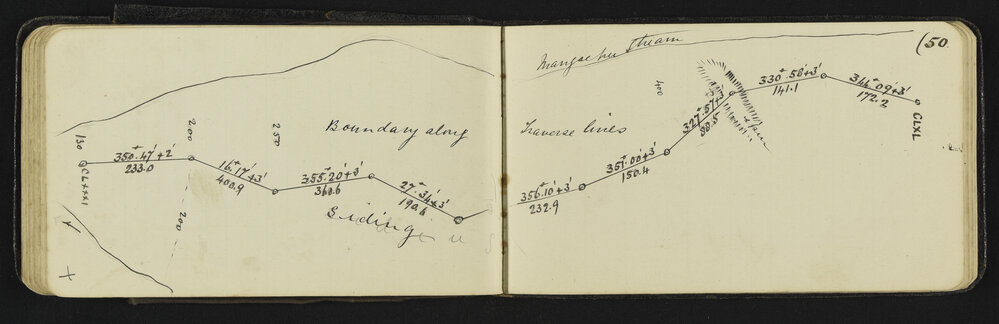 (50.
stream
Boundary along
Traverse lines
130
CLXXXI
200
250
400
350°.47'+2'
233.0
16°.17'+3'
400.9
355°.20'+3'
360.6
27°.34'+3'
190.6
200
Siding
356°.10'+3'
232.9
351°.00'+3'
150.4
327°.57'+3'
80.5
330°.58'+3'
141.1
344°.09'+3'
172.2
CLXL